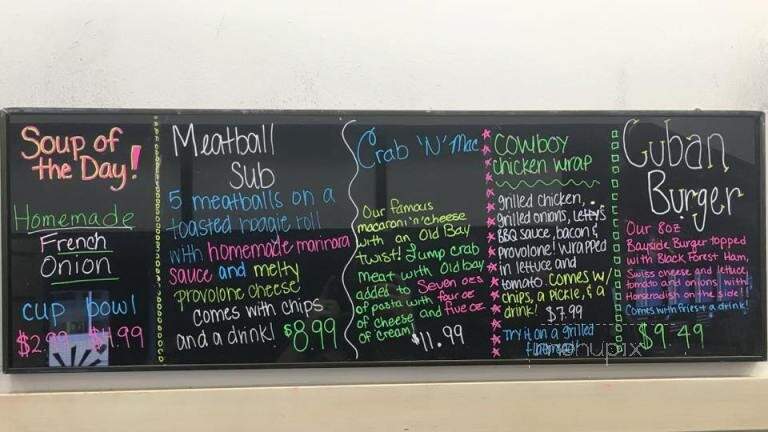 Soup of
the Day!
Homemade
French
Onion
cup bowl
$2.99 $4.99
Meatball
Sub
5 meatballs on a
toasted hoagie roll
with homemade marinara
sauce and melty
provolone cheese
comes with chips
and a drink! $8.99
Crab 'N' Mac
Our famous
macaroni 'n' cheese
with an Old Bay
twist! Lump crab
meat with Old bay
added to Seven oz's
of pasta with four oz
of cheese and five oz
of cream! $11.99
COWBOY
chicken wrap
grilled chicken,
grilled onions, Lefty's
BBQ sauce, bacon &
provolone! wrapped
in lettuce and
tomato. comes w/
chips, a pickle, & a
drink! $7.99
Try it on a grilled
Cuban
Burger
Our 8oz
Bayside Burger topped
with Black Forest Ham,
Swiss cheese and lettuce,
tomato and onions with
Horseradish on the side!
Comes with fries + a drink!
$9.49
menupix